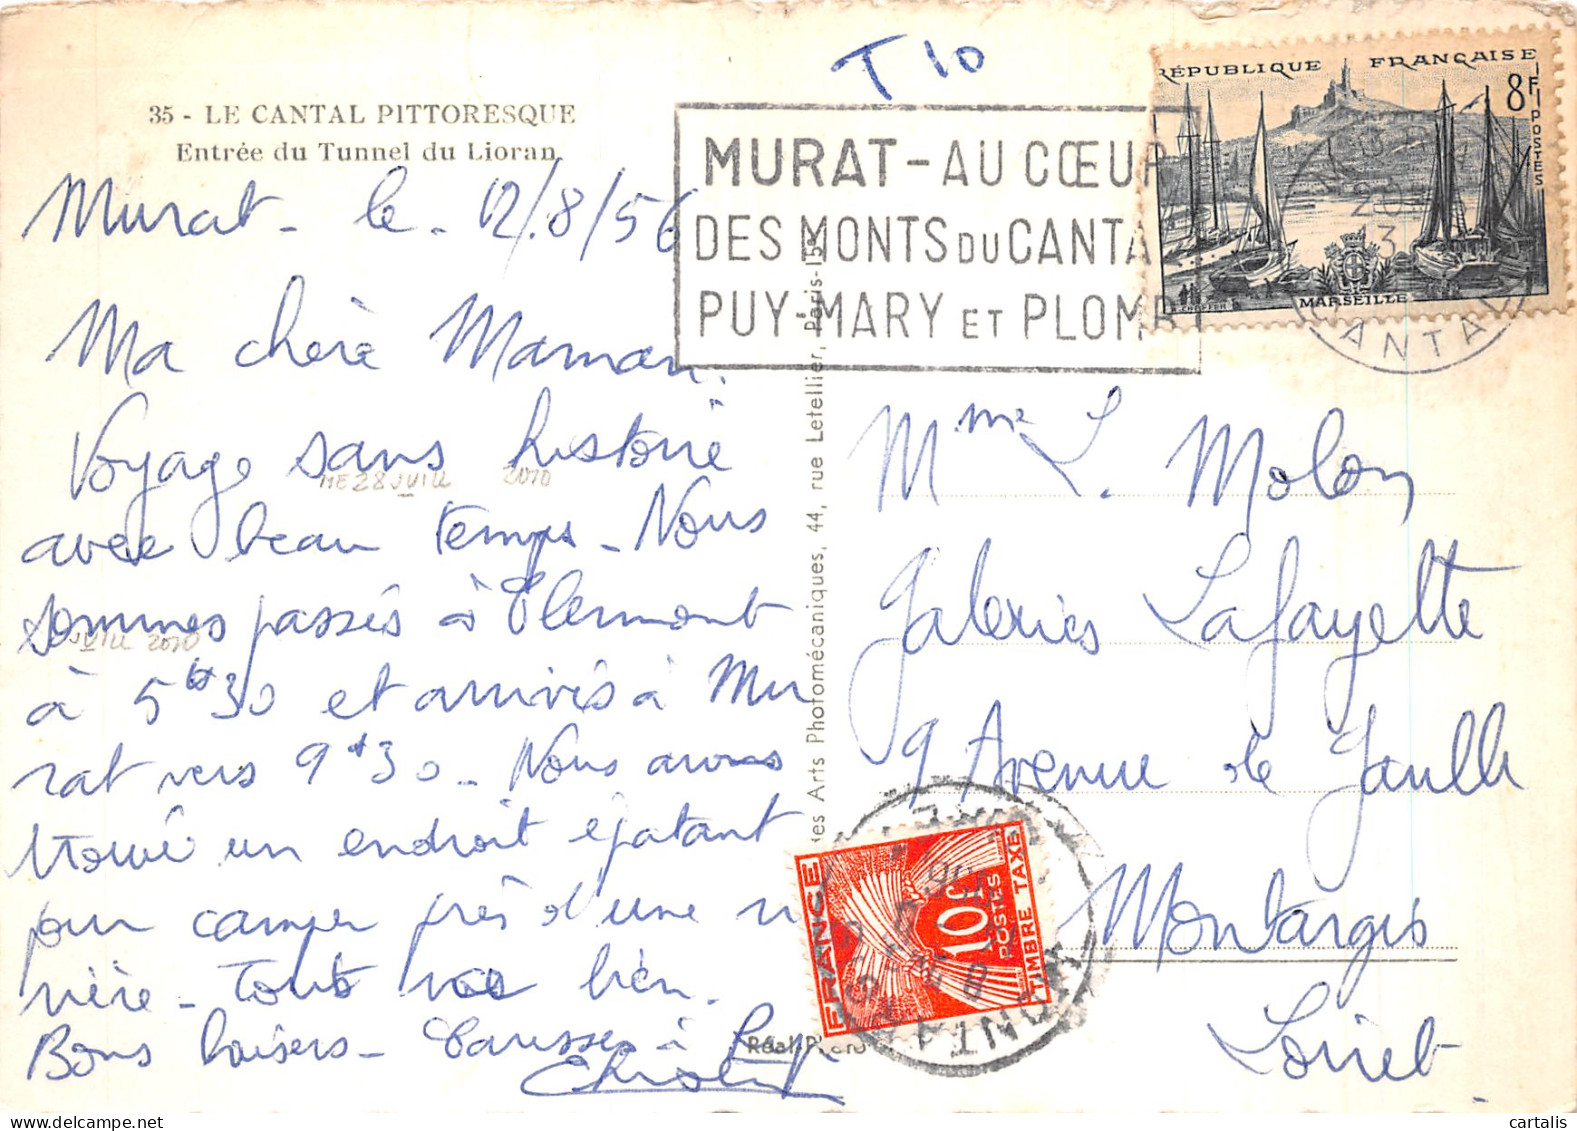 35 - LE CANTAL PITTORESQUE
Entrée du Tunnel du Lioran
Murat - le - 12/8/56
Ma chère Maman.
Voyage sans histoire
avec beau temps - Nous
sommes passés à Clermont
à 5h30 et arrivés à Mu
rat vers 9h30 - Nous avons
trouvé un endroit épatant
pour camper près d'une ri
vière - Tout va bien.
Bons baisers -
ME 28 JUIL 2010
JUIL 2010
T 10
MURAT - AU CŒUR
DES MONTS DU CANTA
PUY-MARY ET PLOMB
RÉPUBLIQUE FRANÇAISE
8F
POSTES
MARSEILLE
CANTAL
des Arts Photomécaniques, 44, rue Letellier, Paris-15e
Mme L. Molon
Galeries Lafayette
9 Avenue de Gaulle
Montargis
Loiret
FRANCE
10f
POSTES
TIMBRE TAXE
MONTARGIS
Réal-Photo
cartalis
www.delcampe.net